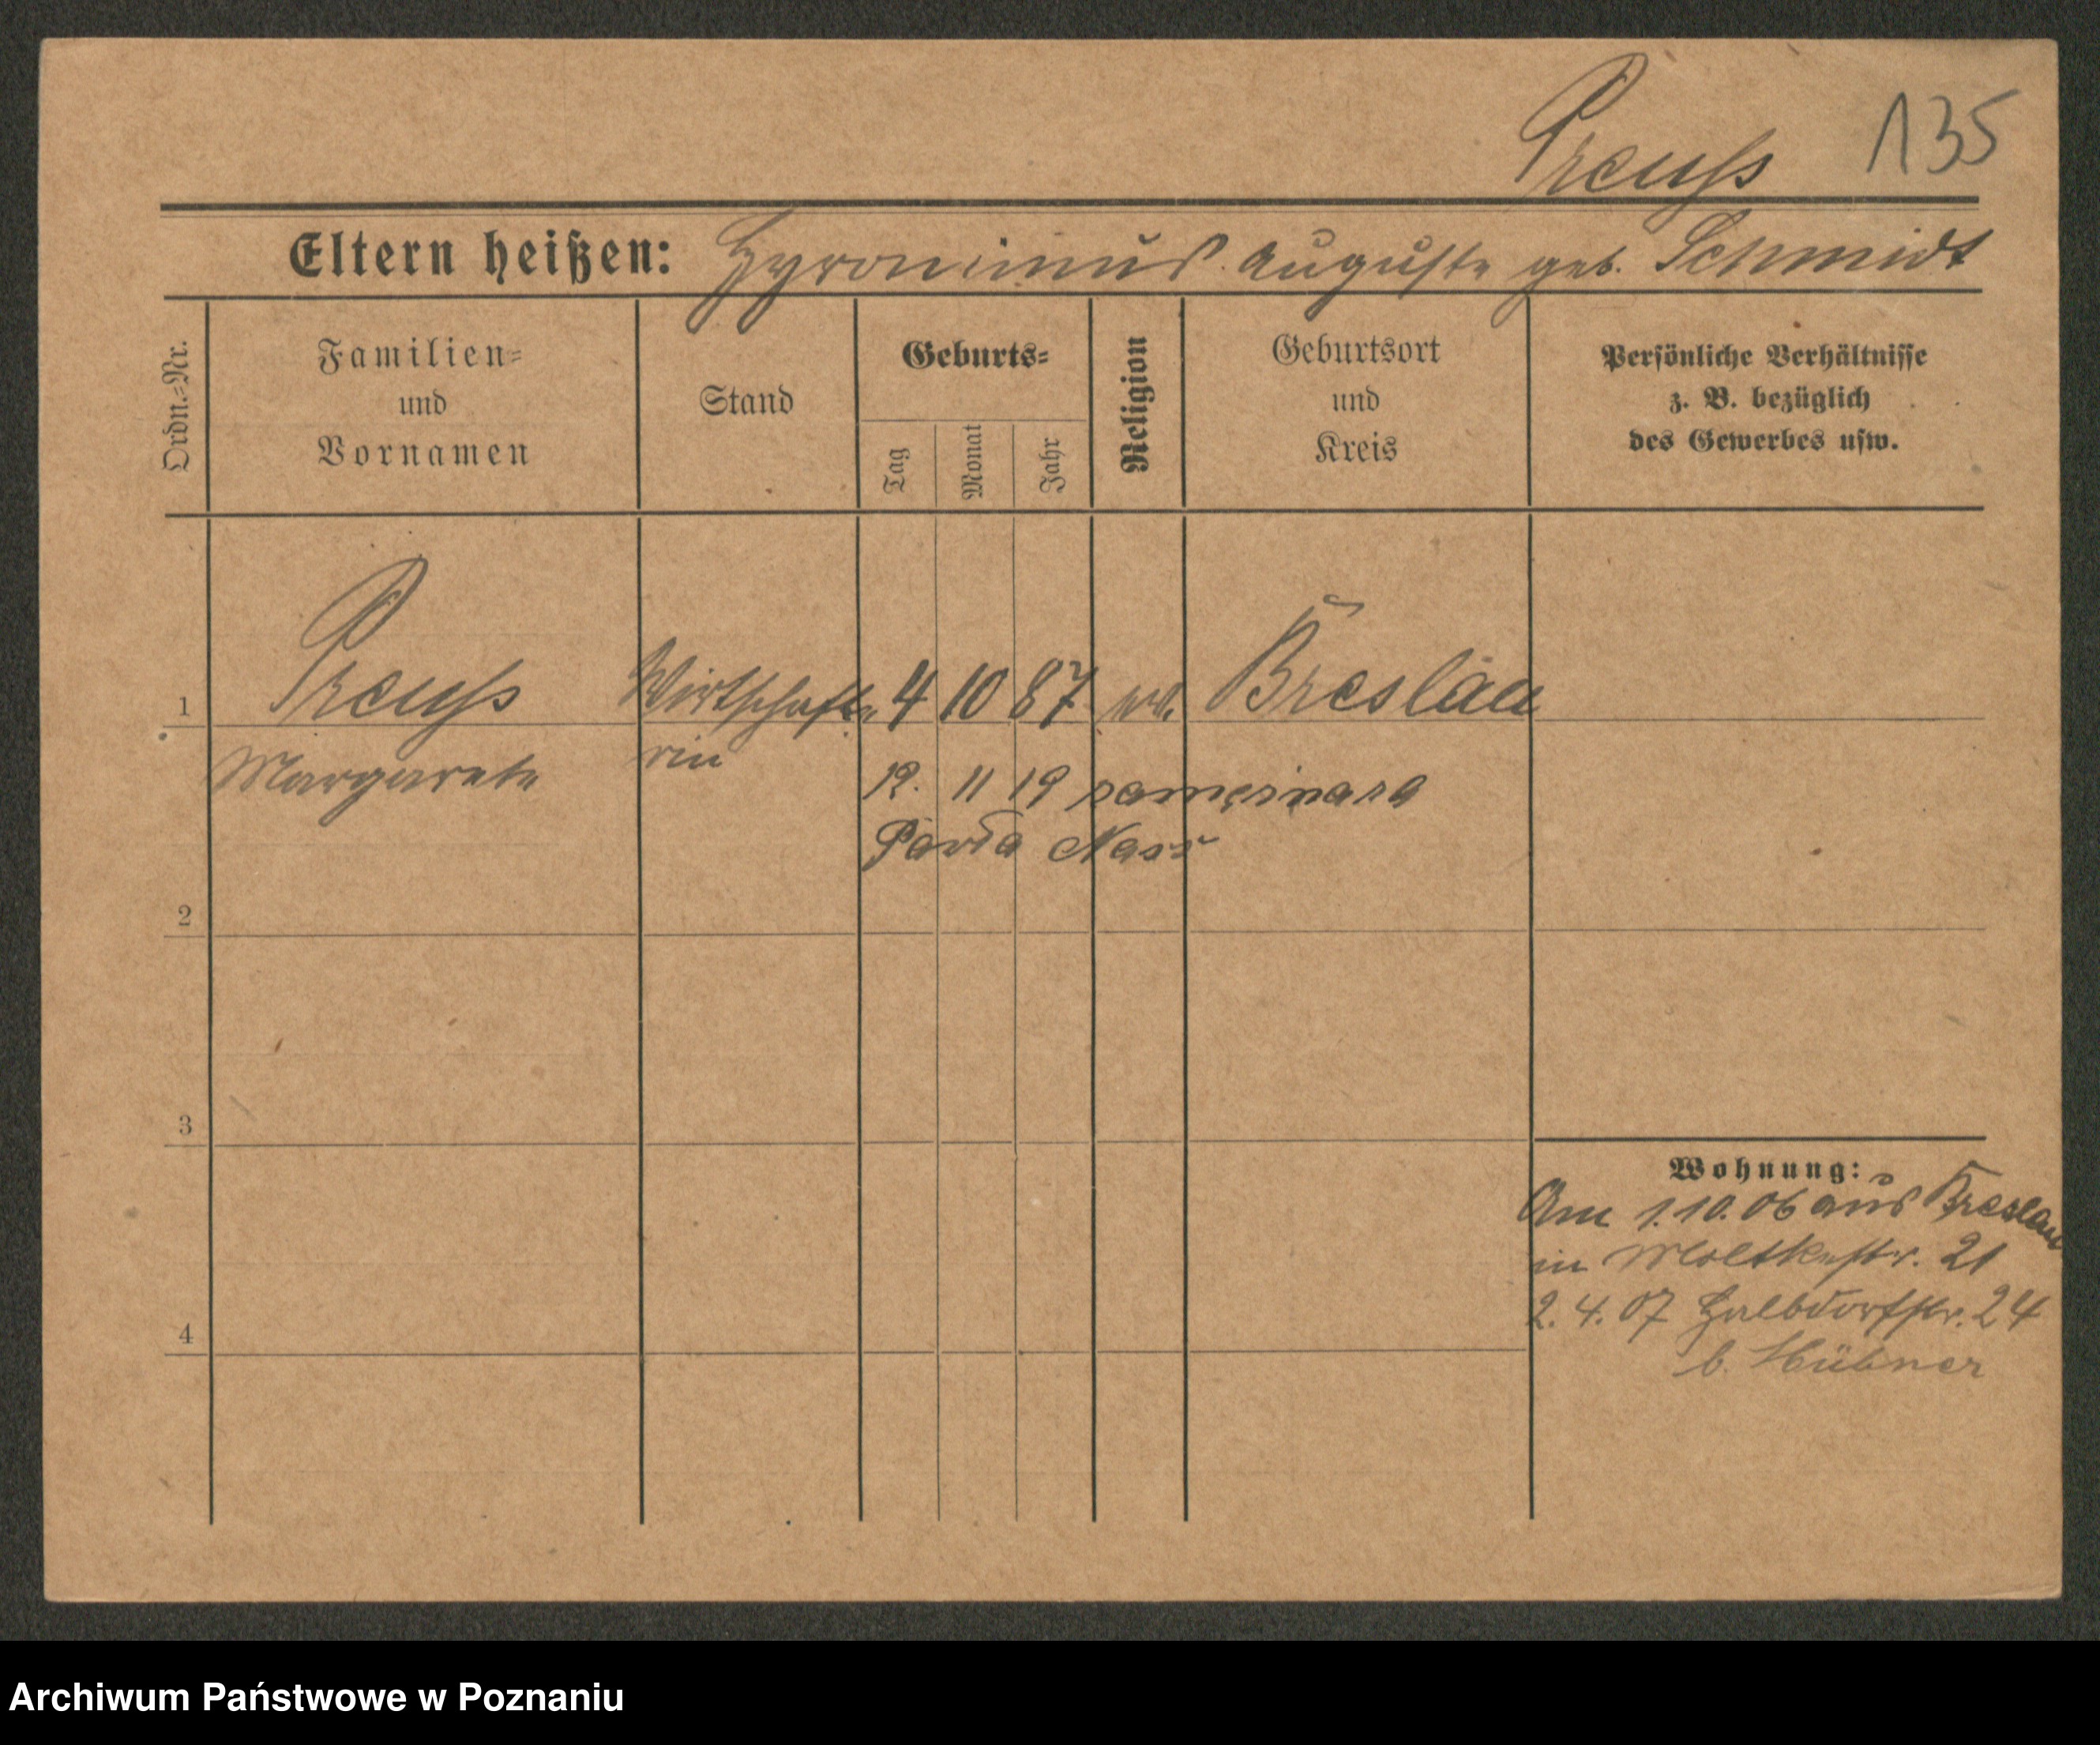 Preuß 135
Eltern heißen: Hyronimus. Auguste geb. Schmidt
Ordn.-Nr.
Familien-
und
Vornamen
Stand
Geburts-
Tag
Monat
Jahr
Religion
Geburtsort
und
Kreis
Persönliche Verhältnisse
z. B. bezüglich
des Gewerbes usw.
1 Preuß Wirtschafte- 4 10 87 Breslau
Margarete rin 12. 11 19
2
3
Wohnung:
Am 1.10.06 aus Breslau
in Moltkestr. 21
4 2.4.07 Halbdorfstr. 24
b. Hübner
Archiwum Państwowe w Poznaniu